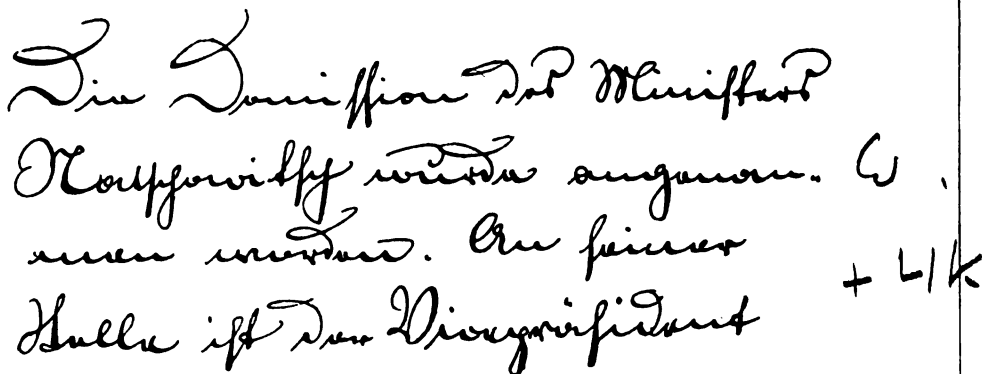 Die Demission des Ministers
Natschowitsch wurde angenom-
men worden. An seiner
Stelle ist der Vicepräsident